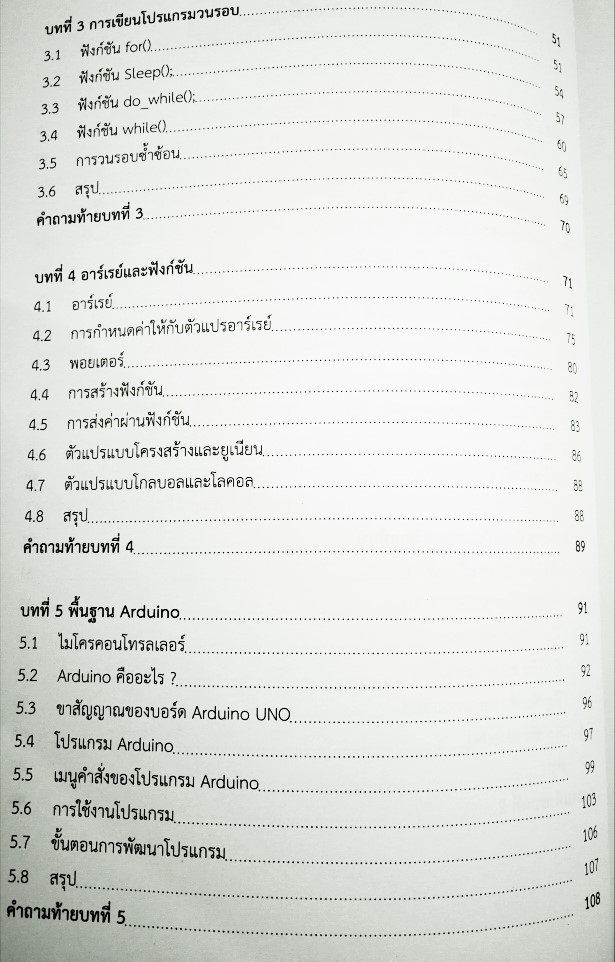 บทที่ 3 การเขียนโปรแกรมวนรอบ........51
3.1 ฟังก์ชัน for()........51
3.2 ฟังก์ชัน Sleep();........54
3.3 ฟังก์ชัน do_while();........57
3.4 ฟังก์ชัน while()........60
3.5 การวนรอบซ้ำซ้อน........65
3.6 สรุป........69
คำถามท้ายบทที่ 3........70
บทที่ 4 อาร์เรย์และฟังก์ชัน........71
4.1 อาร์เรย์........71
4.2 การกำหนดค่าให้กับตัวแปรอาร์เรย์........75
4.3 พอยเตอร์........80
4.4 การสร้างฟังก์ชัน........82
4.5 การส่งค่าผ่านฟังก์ชัน........83
4.6 ตัวแปรแบบโครงสร้างและยูเนียน........86
4.7 ตัวแปรแบบโกลบอลและโลคอล........88
4.8 สรุป........88
คำถามท้ายบทที่ 4........89
บทที่ 5 พื้นฐาน Arduino........91
5.1 ไมโครคอนโทรลเลอร์........91
5.2 Arduino คืออะไร ?........92
5.3 ขาสัญญาณของบอร์ด Arduino UNO........96
5.4 โปรแกรม Arduino........97
5.5 เมนูคำสั่งของโปรแกรม Arduino........99
5.6 การใช้งานโปรแกรม........103
5.7 ขั้นตอนการพัฒนาโปรแกรม........106
5.8 สรุป........107
คำถามท้ายบทที่ 5........108